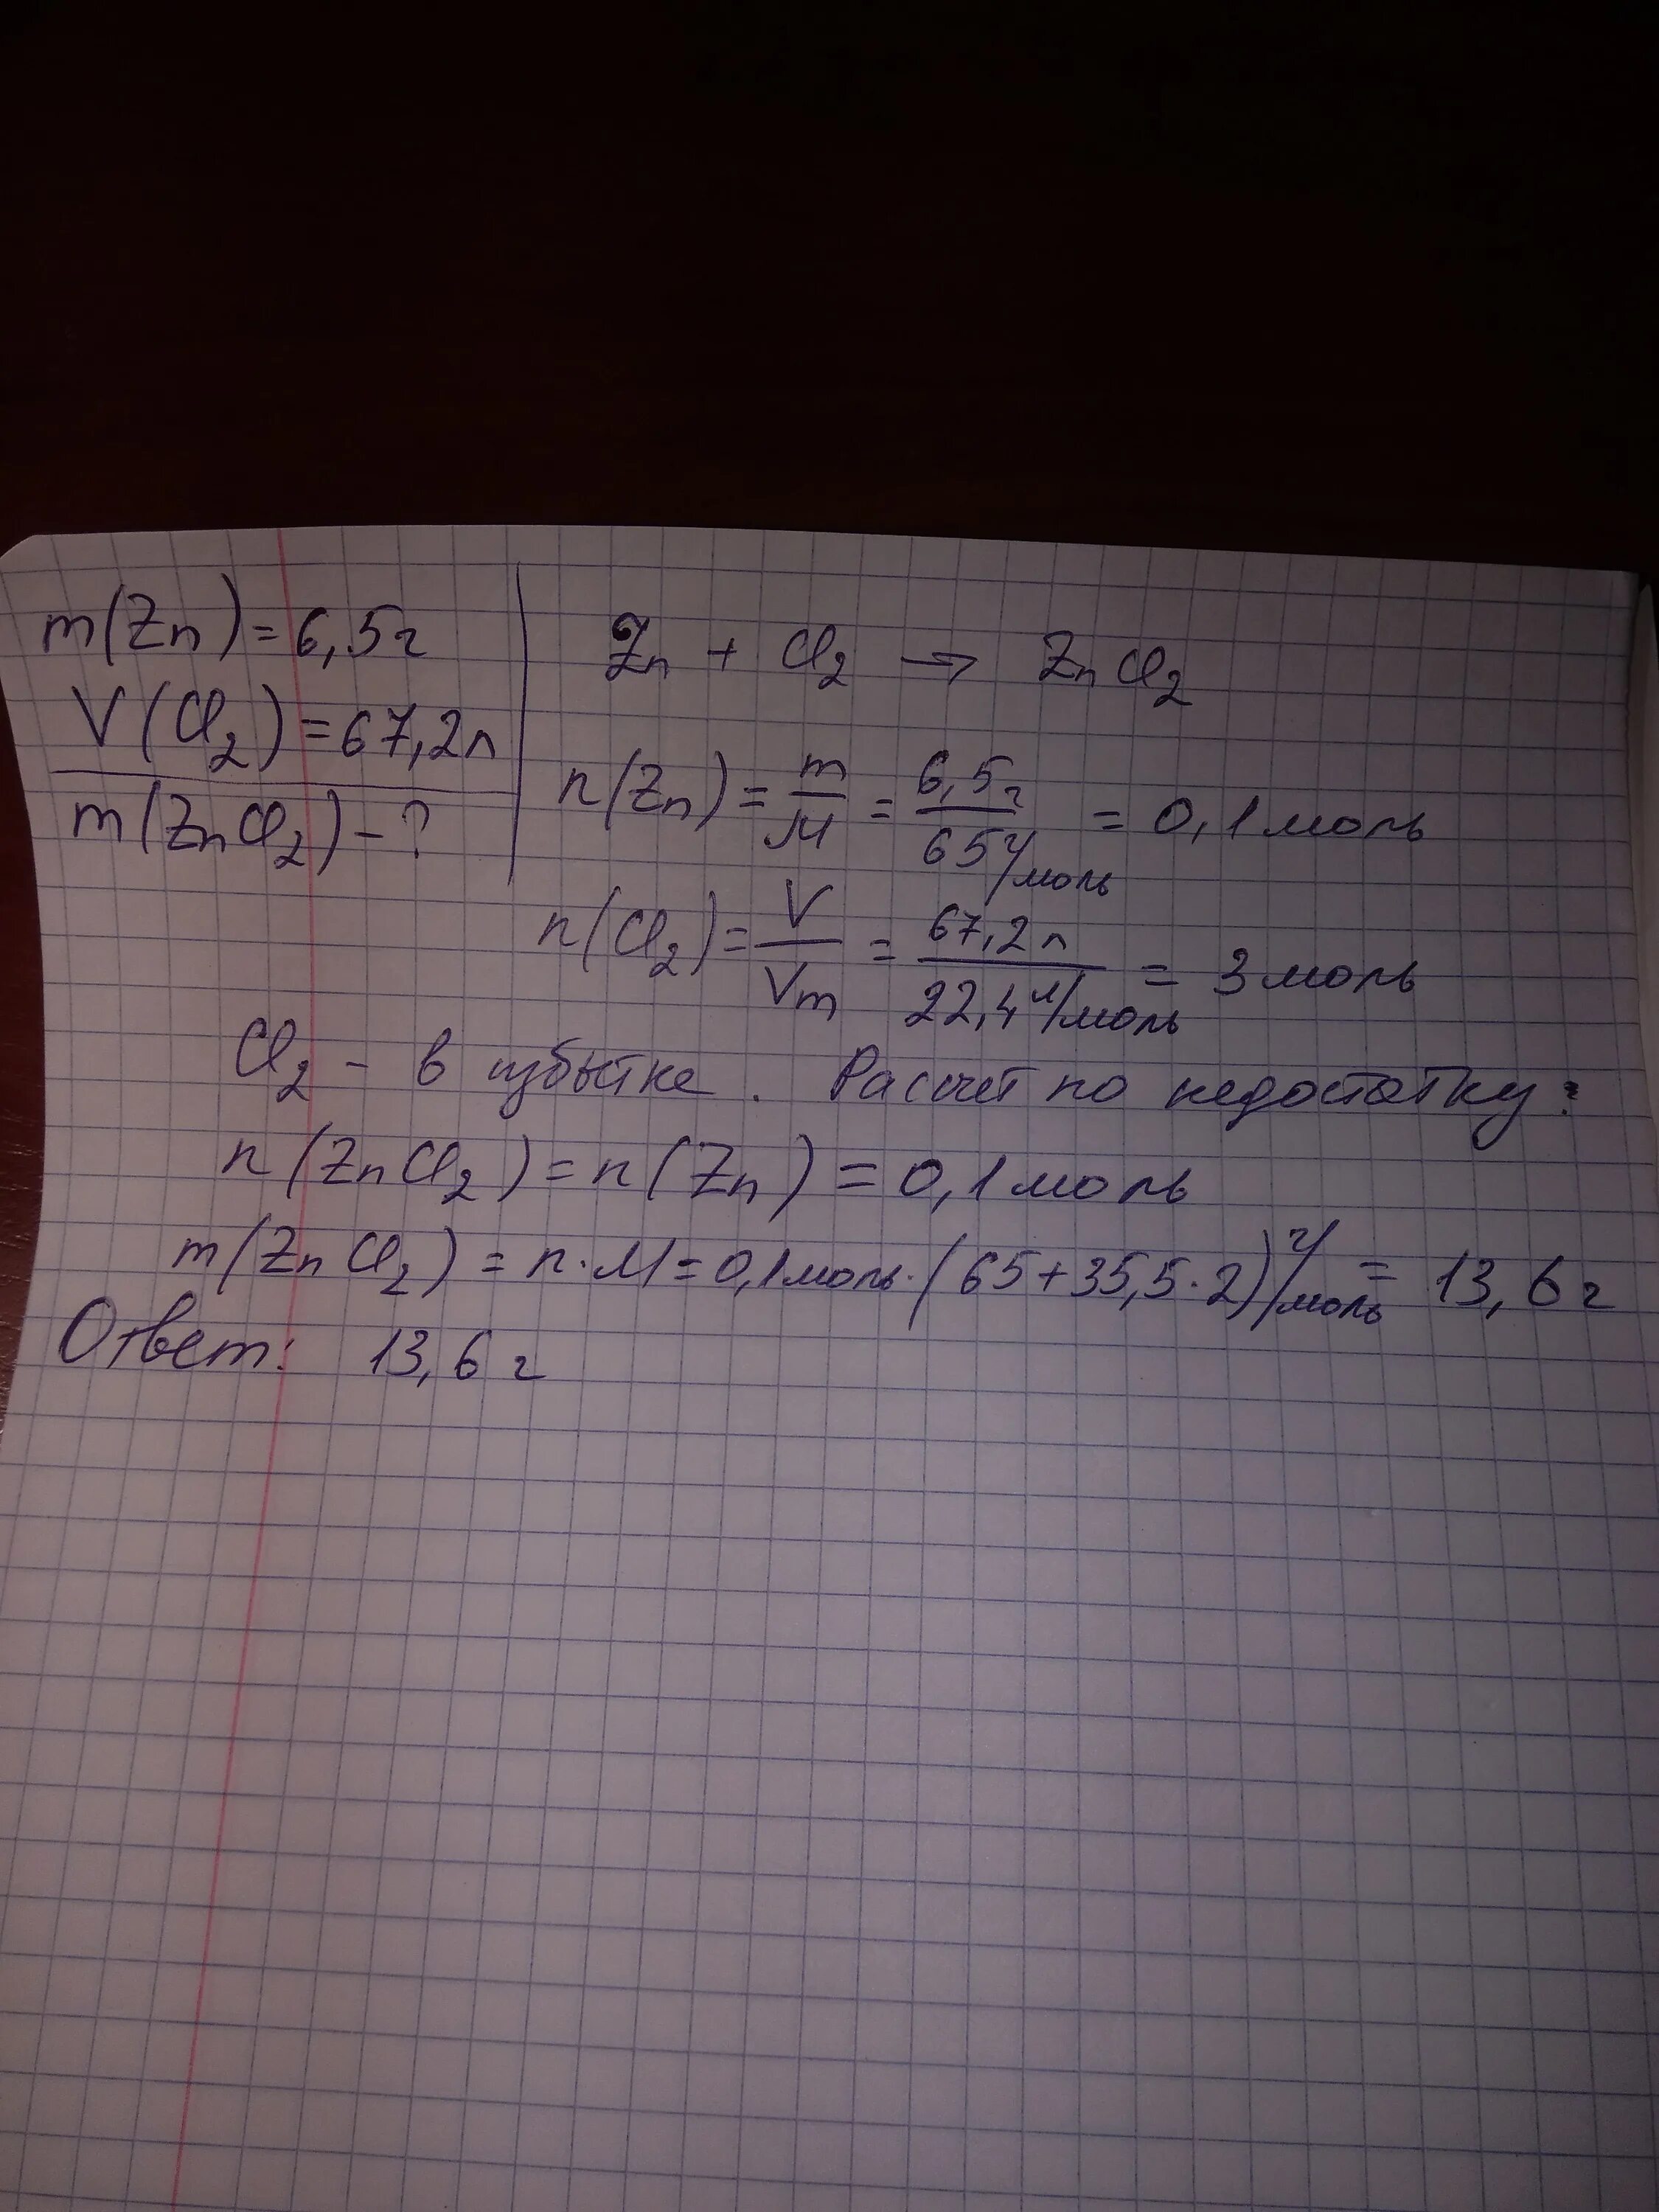 m(Zn) = 6,5г
V(Cl₂) = 67,2л
m(ZnCl₂) - ?
Zn + Cl₂ → ZnCl₂
n(Zn) = m/M = 6,5г / 65 г/моль = 0,1 моль
n(Cl₂) = V/Vm = 67,2л / 22,4 л/моль = 3 моль
Cl₂ - в избытке. Расчет по недостатку:
n(ZnCl₂) = n(Zn) = 0,1 моль
m(ZnCl₂) = n·M = 0,1 моль·(65+35,5·2) г/моль = 13,6г
Ответ: 13,6 г